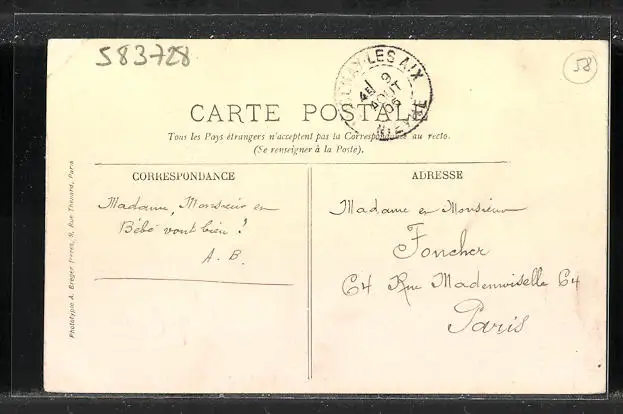 583728
58
LES AIX
4E 9
AOUT
05
NIEVRE
CARTE POSTALE
Tous les Pays étrangers n'acceptent pas la Correspondance au recto.
(Se renseigner à la Poste).
CORRESPONDANCE
Madame, Monsieur et
Bébé vont bien ?
A. B.
ADRESSE
Madame et Monsieur
Foncher
64 Rue Mademoiselle 64
Paris
Phototypie A. Breger frères, 9, Rue Thénard, Paris